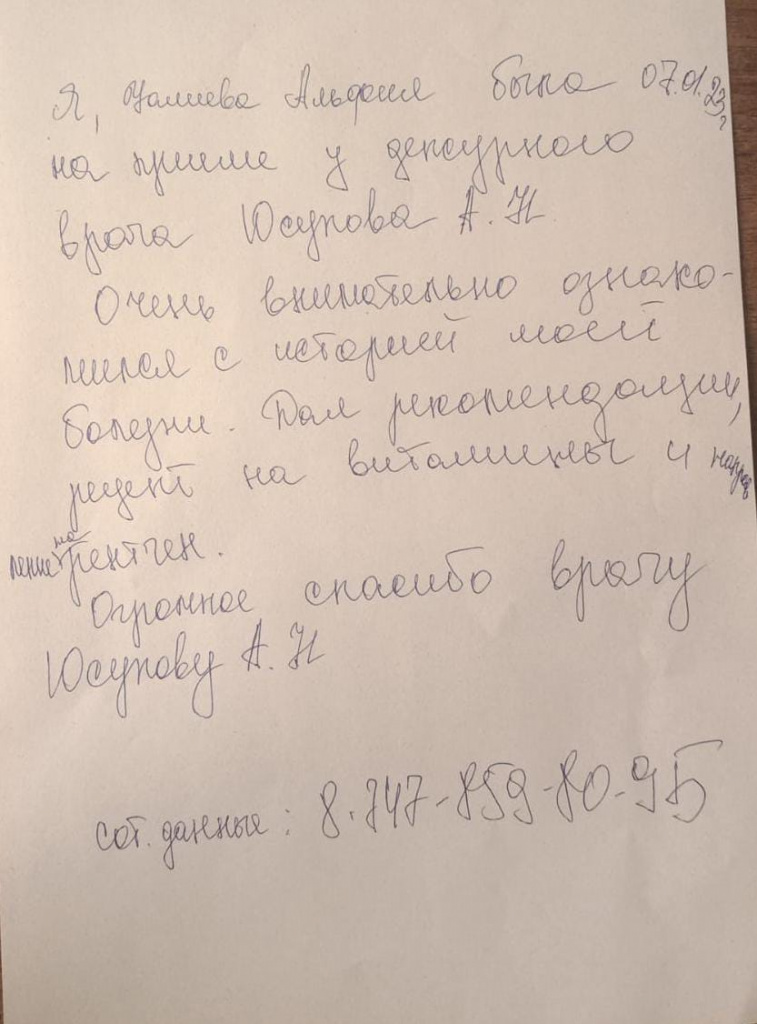 Я, Уалиева Альфия была 07.01.23г
на приеме у дежурного
врача Юсупова А. Н.
Очень внимательно ознако-
мился с историей моей
болезни. Дал рекомендации,
рецепт на витамины и направ
ление на рентген.
Огромное спасибо врачу
Юсупову А. Н
сот. данные: 8.747-859-80-95